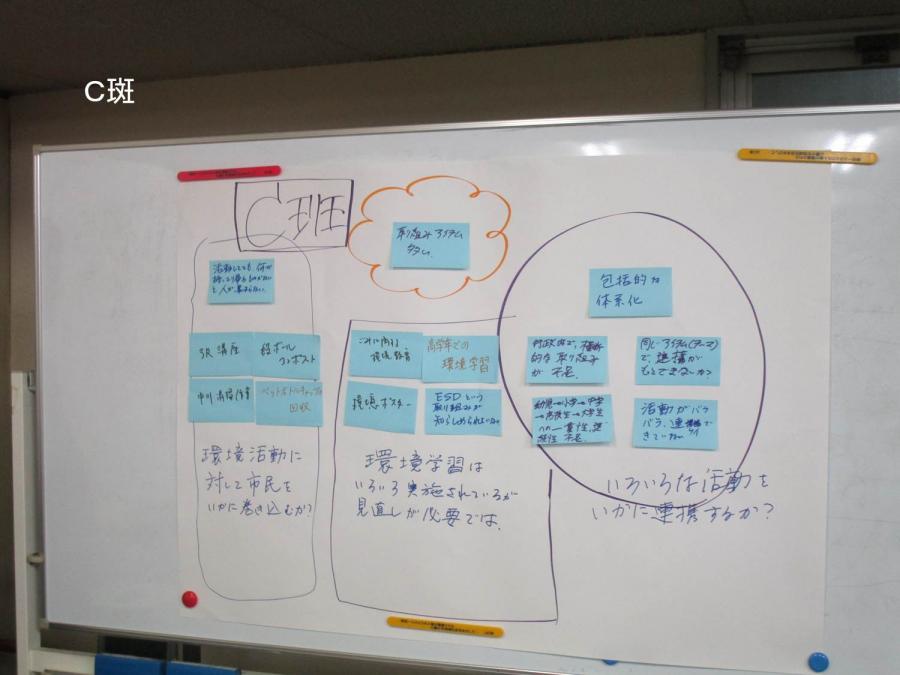 C斑
C班
取り組みアイテム
多い.
包括的な
体系化
活動しても、何か
と人が集まらない.
3R 講座
段ボール
コンポスト
中川 清掃作業
ペットボトルキャップの
回収
環境活動に
対して市民を
いかに巻き込むか?
環境教育
高学年での
環境学習
環境ポスター
ESDという
取り組みが
知らしめられていない
環境学習は
いろいろ実施されているが
見直しが必要では.
行政内で、横断
的な取り組み
が不足.
同じアイテム(テーマ)
で、連携が
もっとできないか?
幼児→小学→中学
→高校生→大学生
への一貫性、連
続性 不足.
活動がバラ
バラ、連携で
きていない
いろいろな活動を
いかに連携するか?